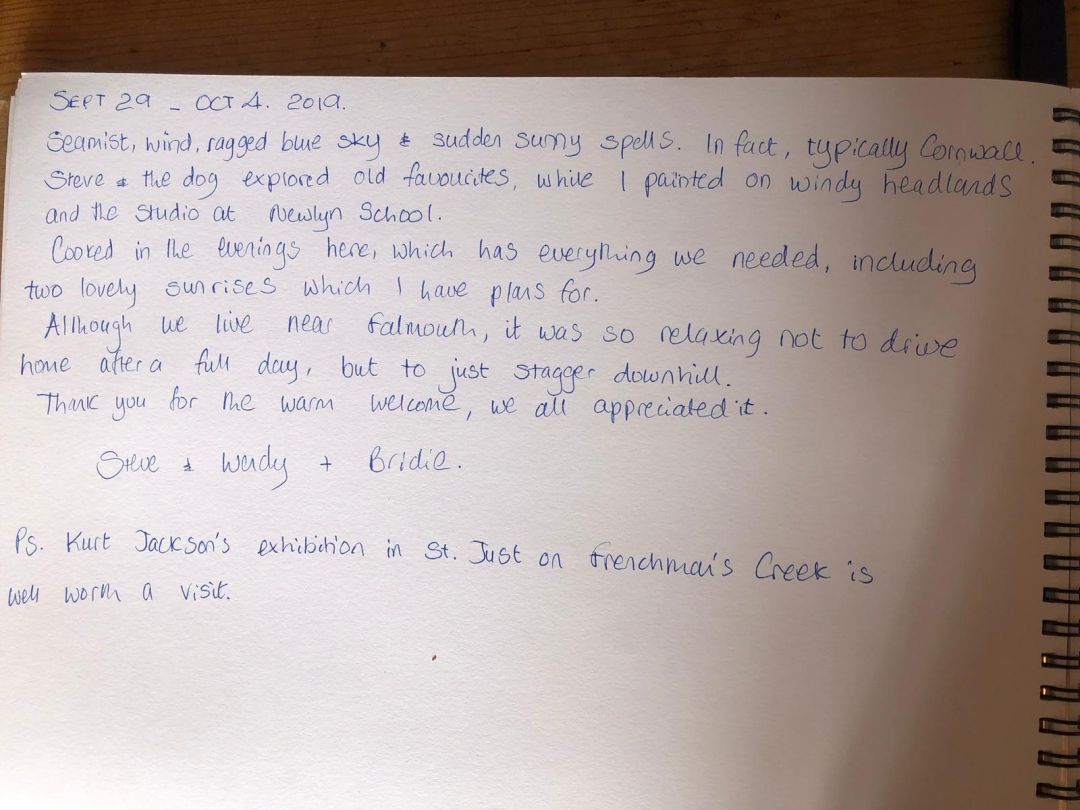 SEPT 29 - OCT 4. 2019.
Seamist, wind, ragged blue sky & sudden sunny spells. In fact, typically Cornwall.
Steve & the dog explored old favourites, while I painted on windy headlands
and the studio at Newlyn School.
Cooked in the evenings here, which has everything we needed, including
two lovely sunrises which I have plans for.
Although we live near Falmouth, it was so relaxing not to drive
home after a full day, but to just stagger downhill.
Thank you for the warm welcome, we all appreciated it.
Steve & Wendy + Bridie.
Ps. Kurt Jackson's exhibition in St. Just on Frenchman's Creek is
well worth a visit.